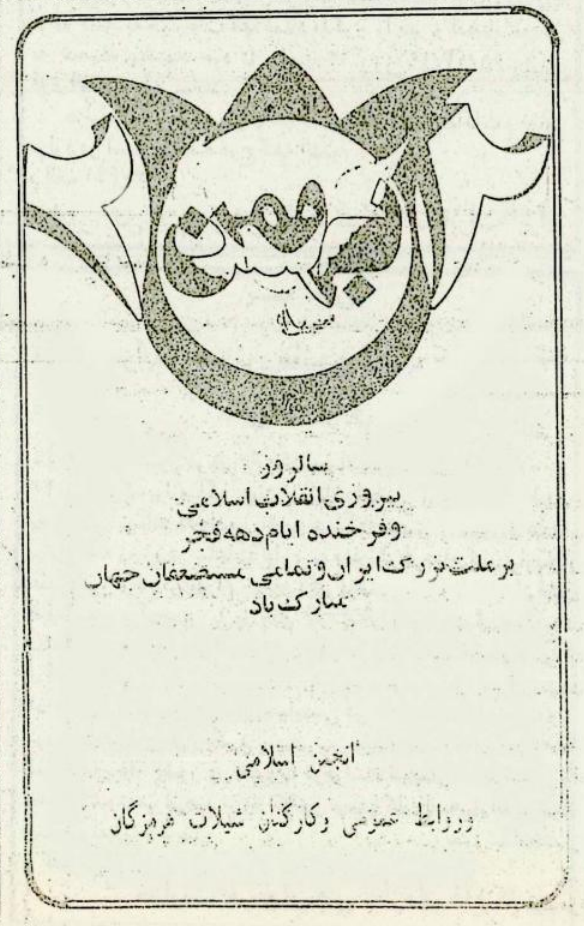 بهمن
سالروز
پیروزی انقلاب اسلامی
و فرخنده ایام دهه فجر
بر ملت بزرگ ایران و تمامی مستضعفان جهان
مبارک باد
انجمن اسلامی
و روابط عمومی و کارکنان شیلات هرمزگان